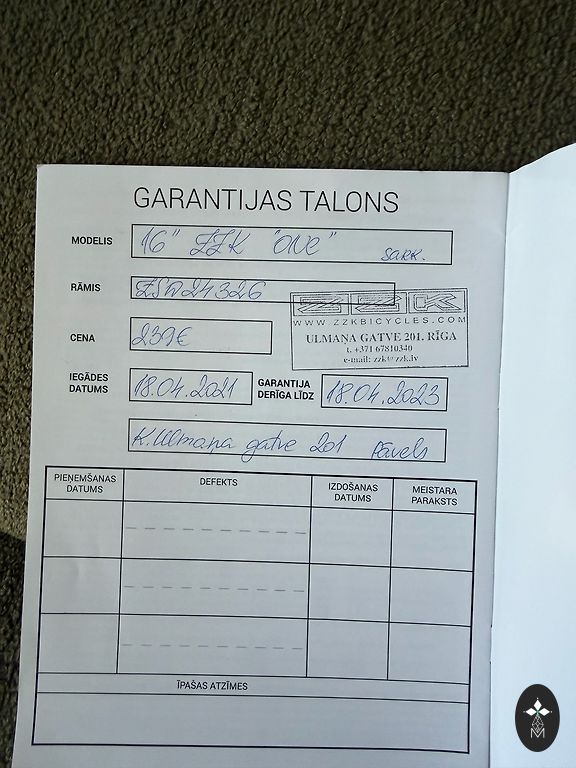 GARANTIJAS TALONS
MODELIS 16" ZZK "ONE" SARK.
RĀMIS ZSW24326
ZZK
WWW.ZZKBICYCLES.COM
ULMAŅA GATVE 201, RĪGA
t. +371 67810340
e-mail: zzk@zzk.lv
CENA 239€
IEGĀDES DATUMS 18.04.2021 GARANTIJA DERĪGA LĪDZ 18.04.2023
K.Ulmaņa gatve 201 Pāvels
PIEŅEMŠANAS DATUMS DEFEKTS IZDOŠANAS DATUMS MEISTARA PARAKSTS
ĪPAŠAS ATZĪMES
M